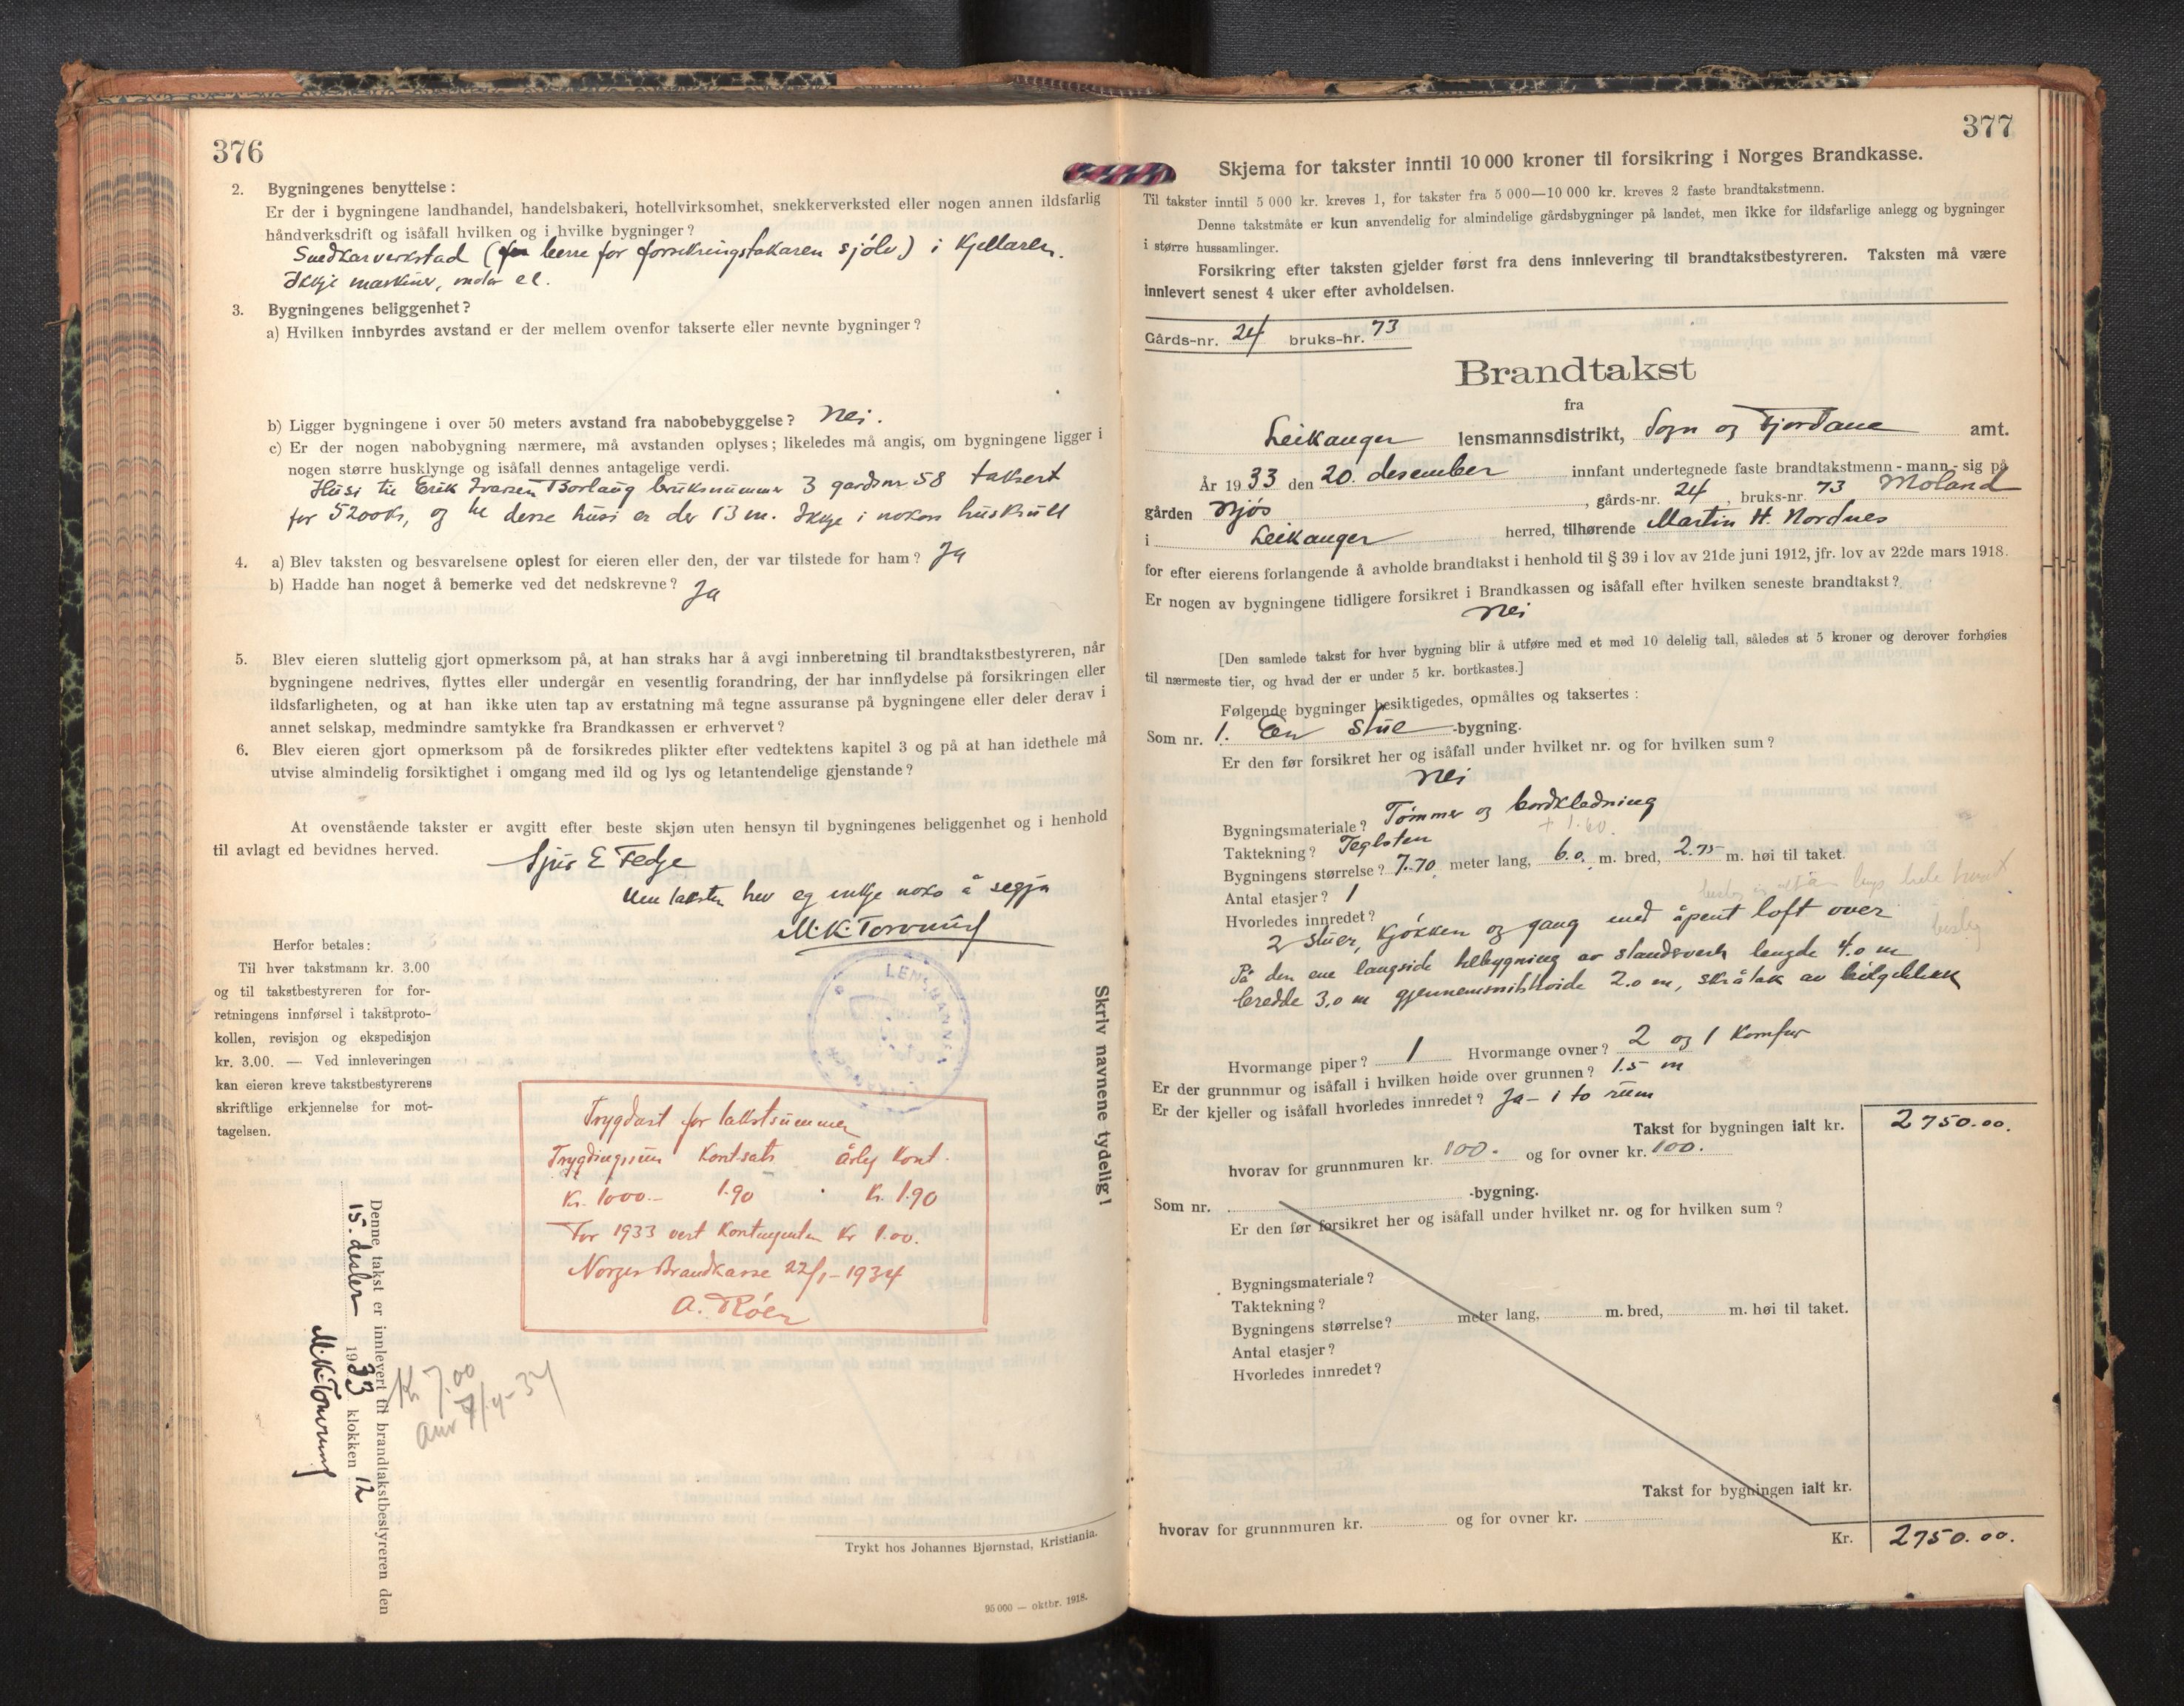 376
2. Bygningenes benyttelse:
Er der i bygningene landhandel, handelsbakeri, hotellvirksomhet, snekkerverksted eller nogen annen ildsfarlig
håndverksdrift og isåfall hvilken og i hvilke bygninger?
Snedkarverkstad ( berre for forsikringstakaren sjølv) i Kjellaren.
Ikkje maskiner, motor el.
3. Bygningenes beliggenhet?
a) Hvilken innbyrdes avstand er der mellem ovenfor takserte eller nevnte bygninger?
b) Ligger bygningene i over 50 meters avstand fra nabobebyggelse? Nei.
c) Er der nogen nabobygning nærmere, må avstanden oplyses; likeledes må angis, om bygningene ligger i
nogen større husklynge og isåfall dennes antagelige verdi.
Husi til Erik Ivarsen Borlaug bruksnummer 3 gardsnr 58 taksert
for 5200 kr, og til desse husi er der 13 m. Ikkje i nokon huskull
4. a) Blev taksten og besvarelsene oplest for eieren eller den, der var tilstede for ham? Ja
b) Hadde han noget å bemerke ved det nedskrevne? Ja
5. Blev eieren sluttelig gjort opmerksom på, at han straks har å avgi innberetning til brandtakstbestyreren, når
bygningene nedrives, flyttes eller undergår en vesentlig forandring, der har innflydelse på forsikringen eller
ildsfarligheten, og at han ikke uten tap av erstatning må tegne assuranse på bygningene eller deler derav i
annet selskap, medmindre samtykke fra Brandkassen er erhvervet?
6. Blev eieren gjort opmerksom på de forsikredes plikter efter vedtektens kapitel 3 og på at han idethele må
utvise almindelig forsiktighet i omgang med ild og lys og letantendelige gjenstande?
At ovenstående takster er avgitt efter beste skjøn uten hensyn til bygningenes beliggenhet og i henhold
til avlagt ed bevidnes herved.
Sjur E Fedje
Um taksten hev eg inkje noko å segja
M.K. Torvund
LENSMANNEN
Herfor betales:
Til hver takstmann kr. 3.00
og til takstbestyreren for for-
retningens innførsel i takstproto-
kollen, revisjon og ekspedisjon
kr. 3.00. — Ved innleveringen
kan eieren kreve takstbestyrerens
skriftlige erkjennelse for mot-
tagelsen.
Skriv navnene tydelig!
Trygdast for takstsummen
Trygdingssum Kont.sats årleg Kont.
Kr. 1000.- 1.90 Kr. 1.90
For 1933 vert Kontingenten Kr 1.00.
Norges Brandkasse 22/1-1934
A. Røen
Denne takst er innlevert til brandtakstbestyreren den
15. desber 1933 klokken 12
M.K. Torvund
Kr 7.00
Trykt hos Johannes Bjørnstad, Kristiania.
95 000 — oktbr. 1918.
377
Skjema for takster inntil 10 000 kroner til forsikring i Norges Brandkasse.
Til takster inntil 5 000 kr. kreves 1, for takster fra 5 000—10 000 kr. kreves 2 faste brandtakstmenn.
Denne takstmåte er kun anvendelig for almindelige gårdsbygninger på landet, men ikke for ildsfarlige anlegg og bygninger
i større hussamlinger.
Forsikring efter taksten gjelder først fra dens innlevering til brandtakstbestyreren. Taksten må være
innlevert senest 4 uker efter avholdelsen.
Gårds-nr. 24 bruks-nr. 73
Brandtakst
fra
Leikanger lensmannsdistrikt, Sogn og Fjordane amt.
År 1933 den 20. desember innfant undertegnede faste brandtakstmenn - mann - sig på
gården Njøs, gårds-nr. 24, bruks-nr. 73 Moland
i Leikanger herred, tilhørende Martin H. Nordnes
for efter eierens forlangende å avholde brandtakst i henhold til § 39 i lov av 21de juni 1912, jfr. lov av 22de mars 1918.
Er nogen av bygningene tidligere forsikret i Brandkassen og isåfall efter hvilken seneste brandtakst?
Nei
[Den samlede takst for hver bygning blir å utføre med et med 10 delelig tall, således at 5 kroner og derover forhøies
til nærmeste tier, og hvad der er under 5 kr. bortkastes.]
Følgende bygninger besiktigedes, opmåltes og taksertes:
Som nr. 1. En Stue -bygning.
Er den før forsikret her og isåfall under hvilket nr. og for hvilken sum?
Nei
Bygningsmateriale? Tømmer og bordkledning
+ 1.60.
Taktekning? Teglsten
Bygningens størrelse? 7.70 meter lang, 6.0. m. bred, 2.75 m. høi til taket.
Antal etasjer? 1
Hvorledes innredet?
2 stuer, kjøkken og gang med åpent loft over
På den ene langside tilbygning av standsverk lengde 4.0 m
bredde 3,0 m gjennemsnitshøide 2.0 m, skråtak av bølgeblikk
Hvormange piper? 1 Hvormange ovner? 2 og 1 Komfur
Er der grunnmur og isåfall i hvilken høide over grunnen? 1.5 m
Er der kjeller og isåfall hvorledes innredet? Ja - i to rum
Takst for bygningen ialt kr. 2750.00.
hvorav for grunnmuren kr. 100. og for ovner kr. 100.
Som nr. -bygning.
Er den før forsikret her og isåfall under hvilket nr. og for hvilken sum?
Bygningsmateriale?
Taktekning?
Bygningens størrelse? meter lang, m. bred, m. høi til taket.
Antal etasjer?
Hvorledes innredet?
Takst for bygningen ialt kr.
hvorav for grunnmuren kr. og for ovner kr.
Kr. 2750.00.